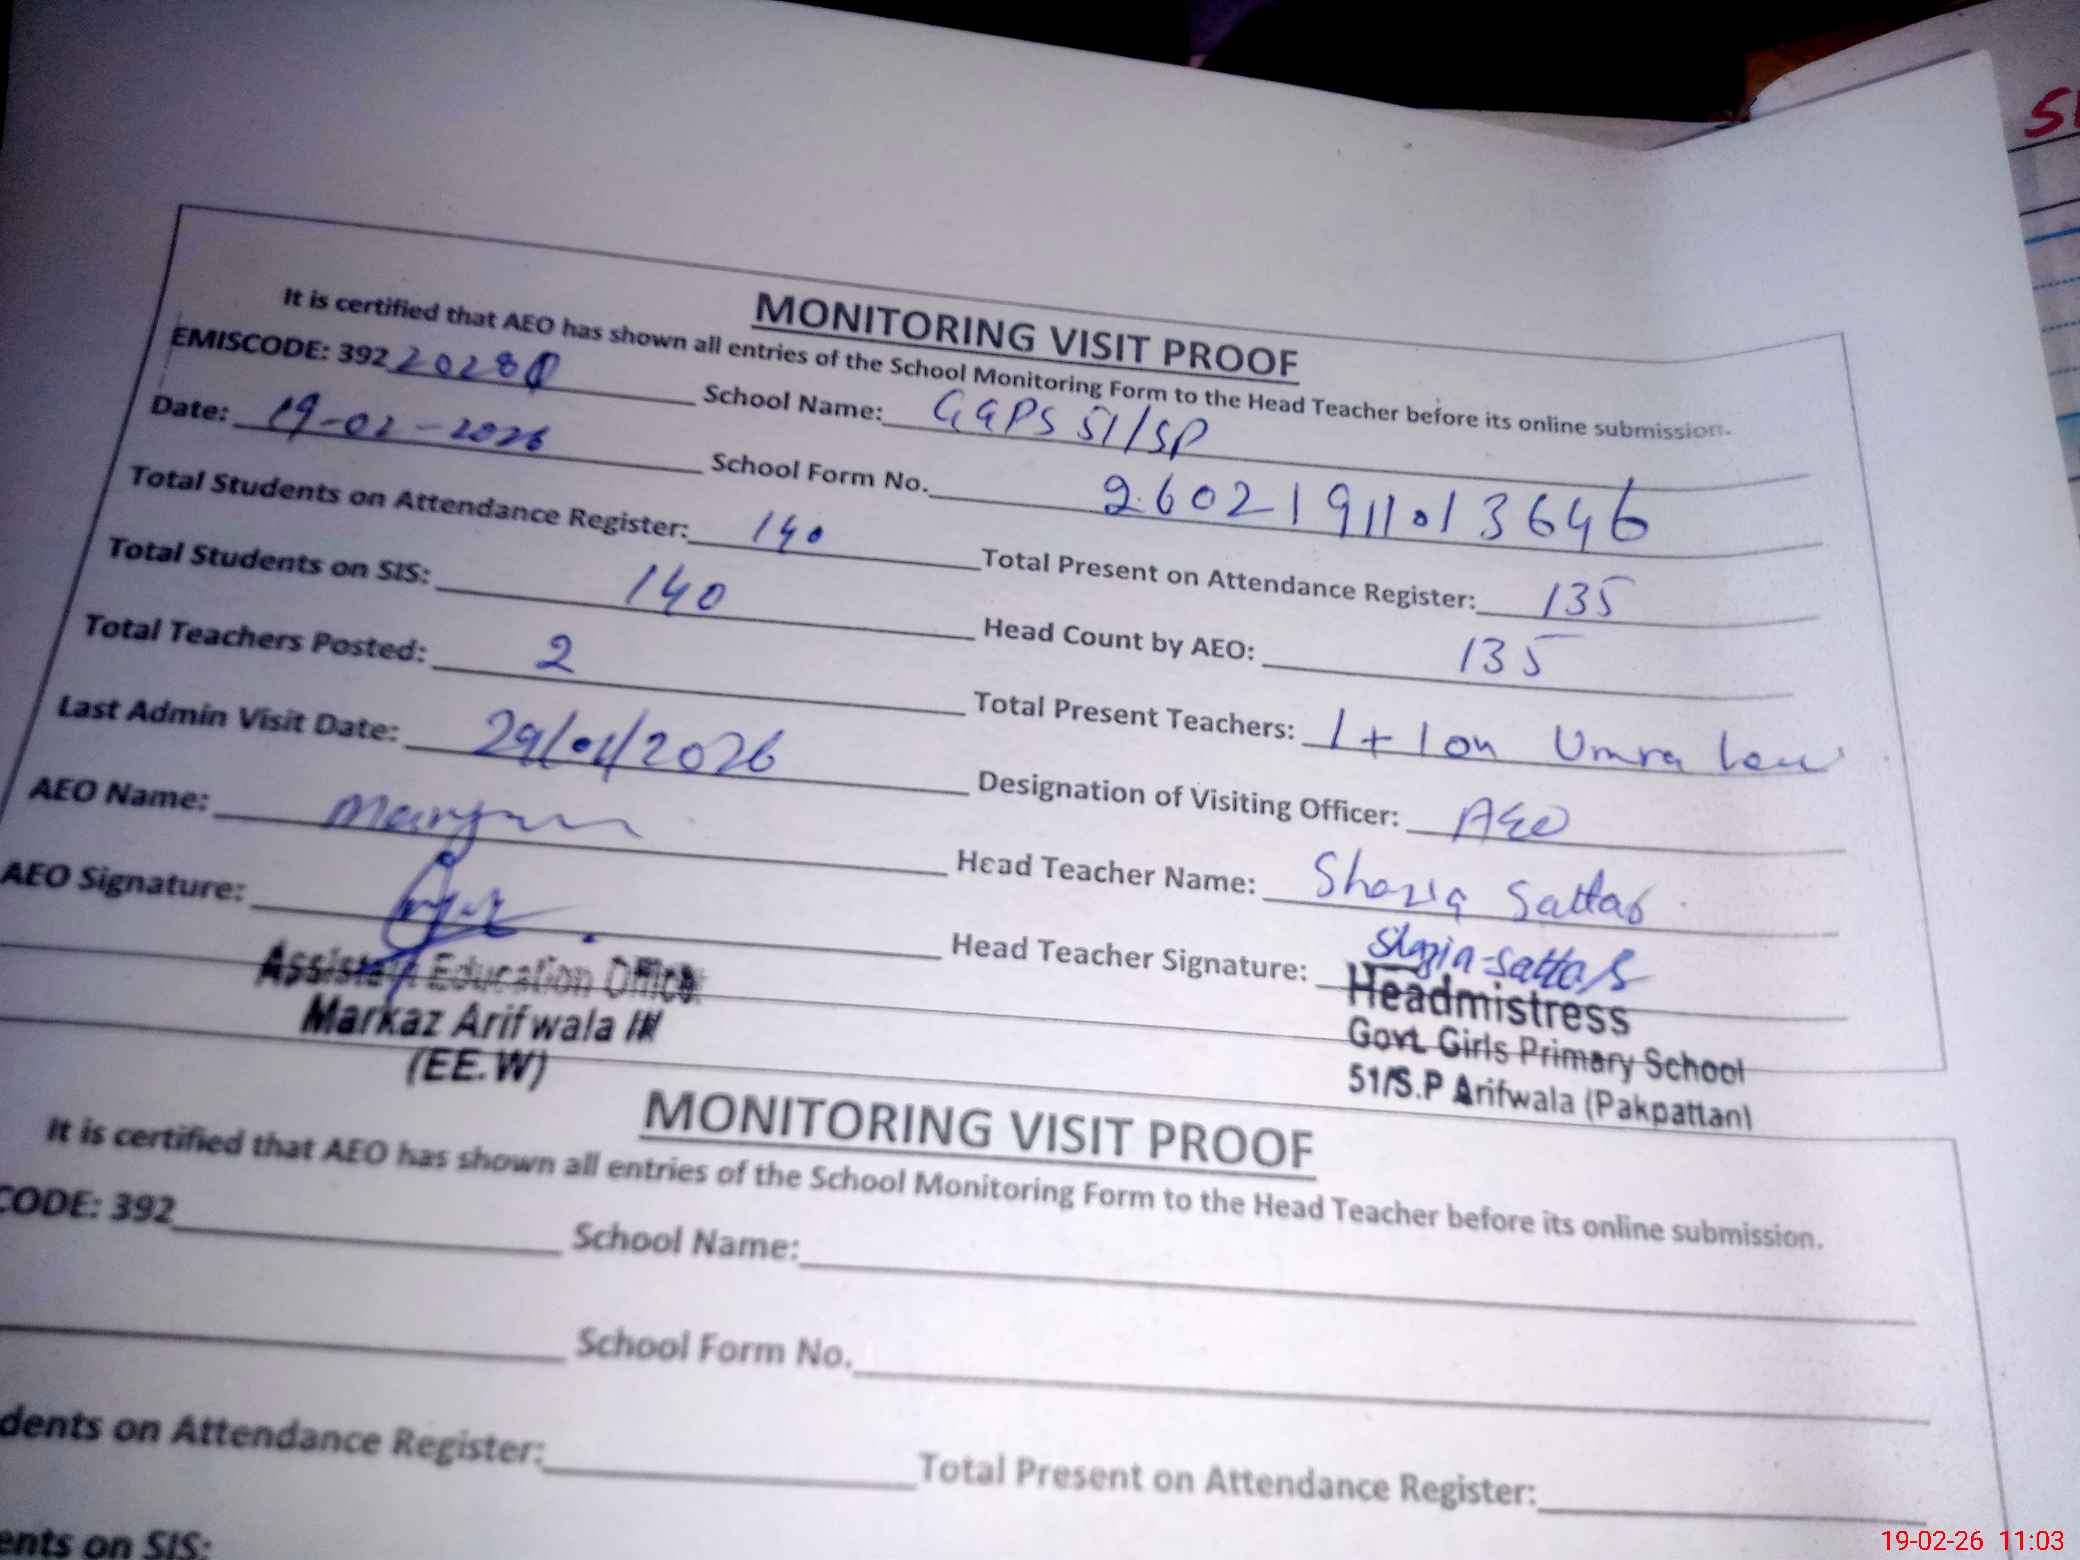 MONITORING VISIT PROOF
It is certified that AEO has shown all entries of the School Monitoring Form to the Head Teacher before its online submission.
EMISCODE: 392 2028 School Name: GGPS 51/SP
Date: 19-02-2026 School Form No. 26021911013646
Total Students on Attendance Register: 140 Total Present on Attendance Register: 135
Total Students on SIS: 140 Head Count by AEO: 135
Total Teachers Posted: 2 Total Present Teachers: 1 + 1 on Umra
Last Admin Visit Date: 29/01/2026 Designation of Visiting Officer: AEO
AEO Name: Maryam Head Teacher Name: Shazia Sattar
AEO Signature: Head Teacher Signature: Shazia Sattar
Assistant Education Officer
Markaz Arifwala
(EE.W)
Headmistress
Govt. Girls Primary School
51/S.P Arifwala (Pakpattan)
MONITORING VISIT PROOF
It is certified that AEO has shown all entries of the School Monitoring Form to the Head Teacher before its online submission.
CODE: 392 School Name:
School Form No.
dents on Attendance Register: Total Present on Attendance Register:
ents on SIS:
19-02-26 11:03